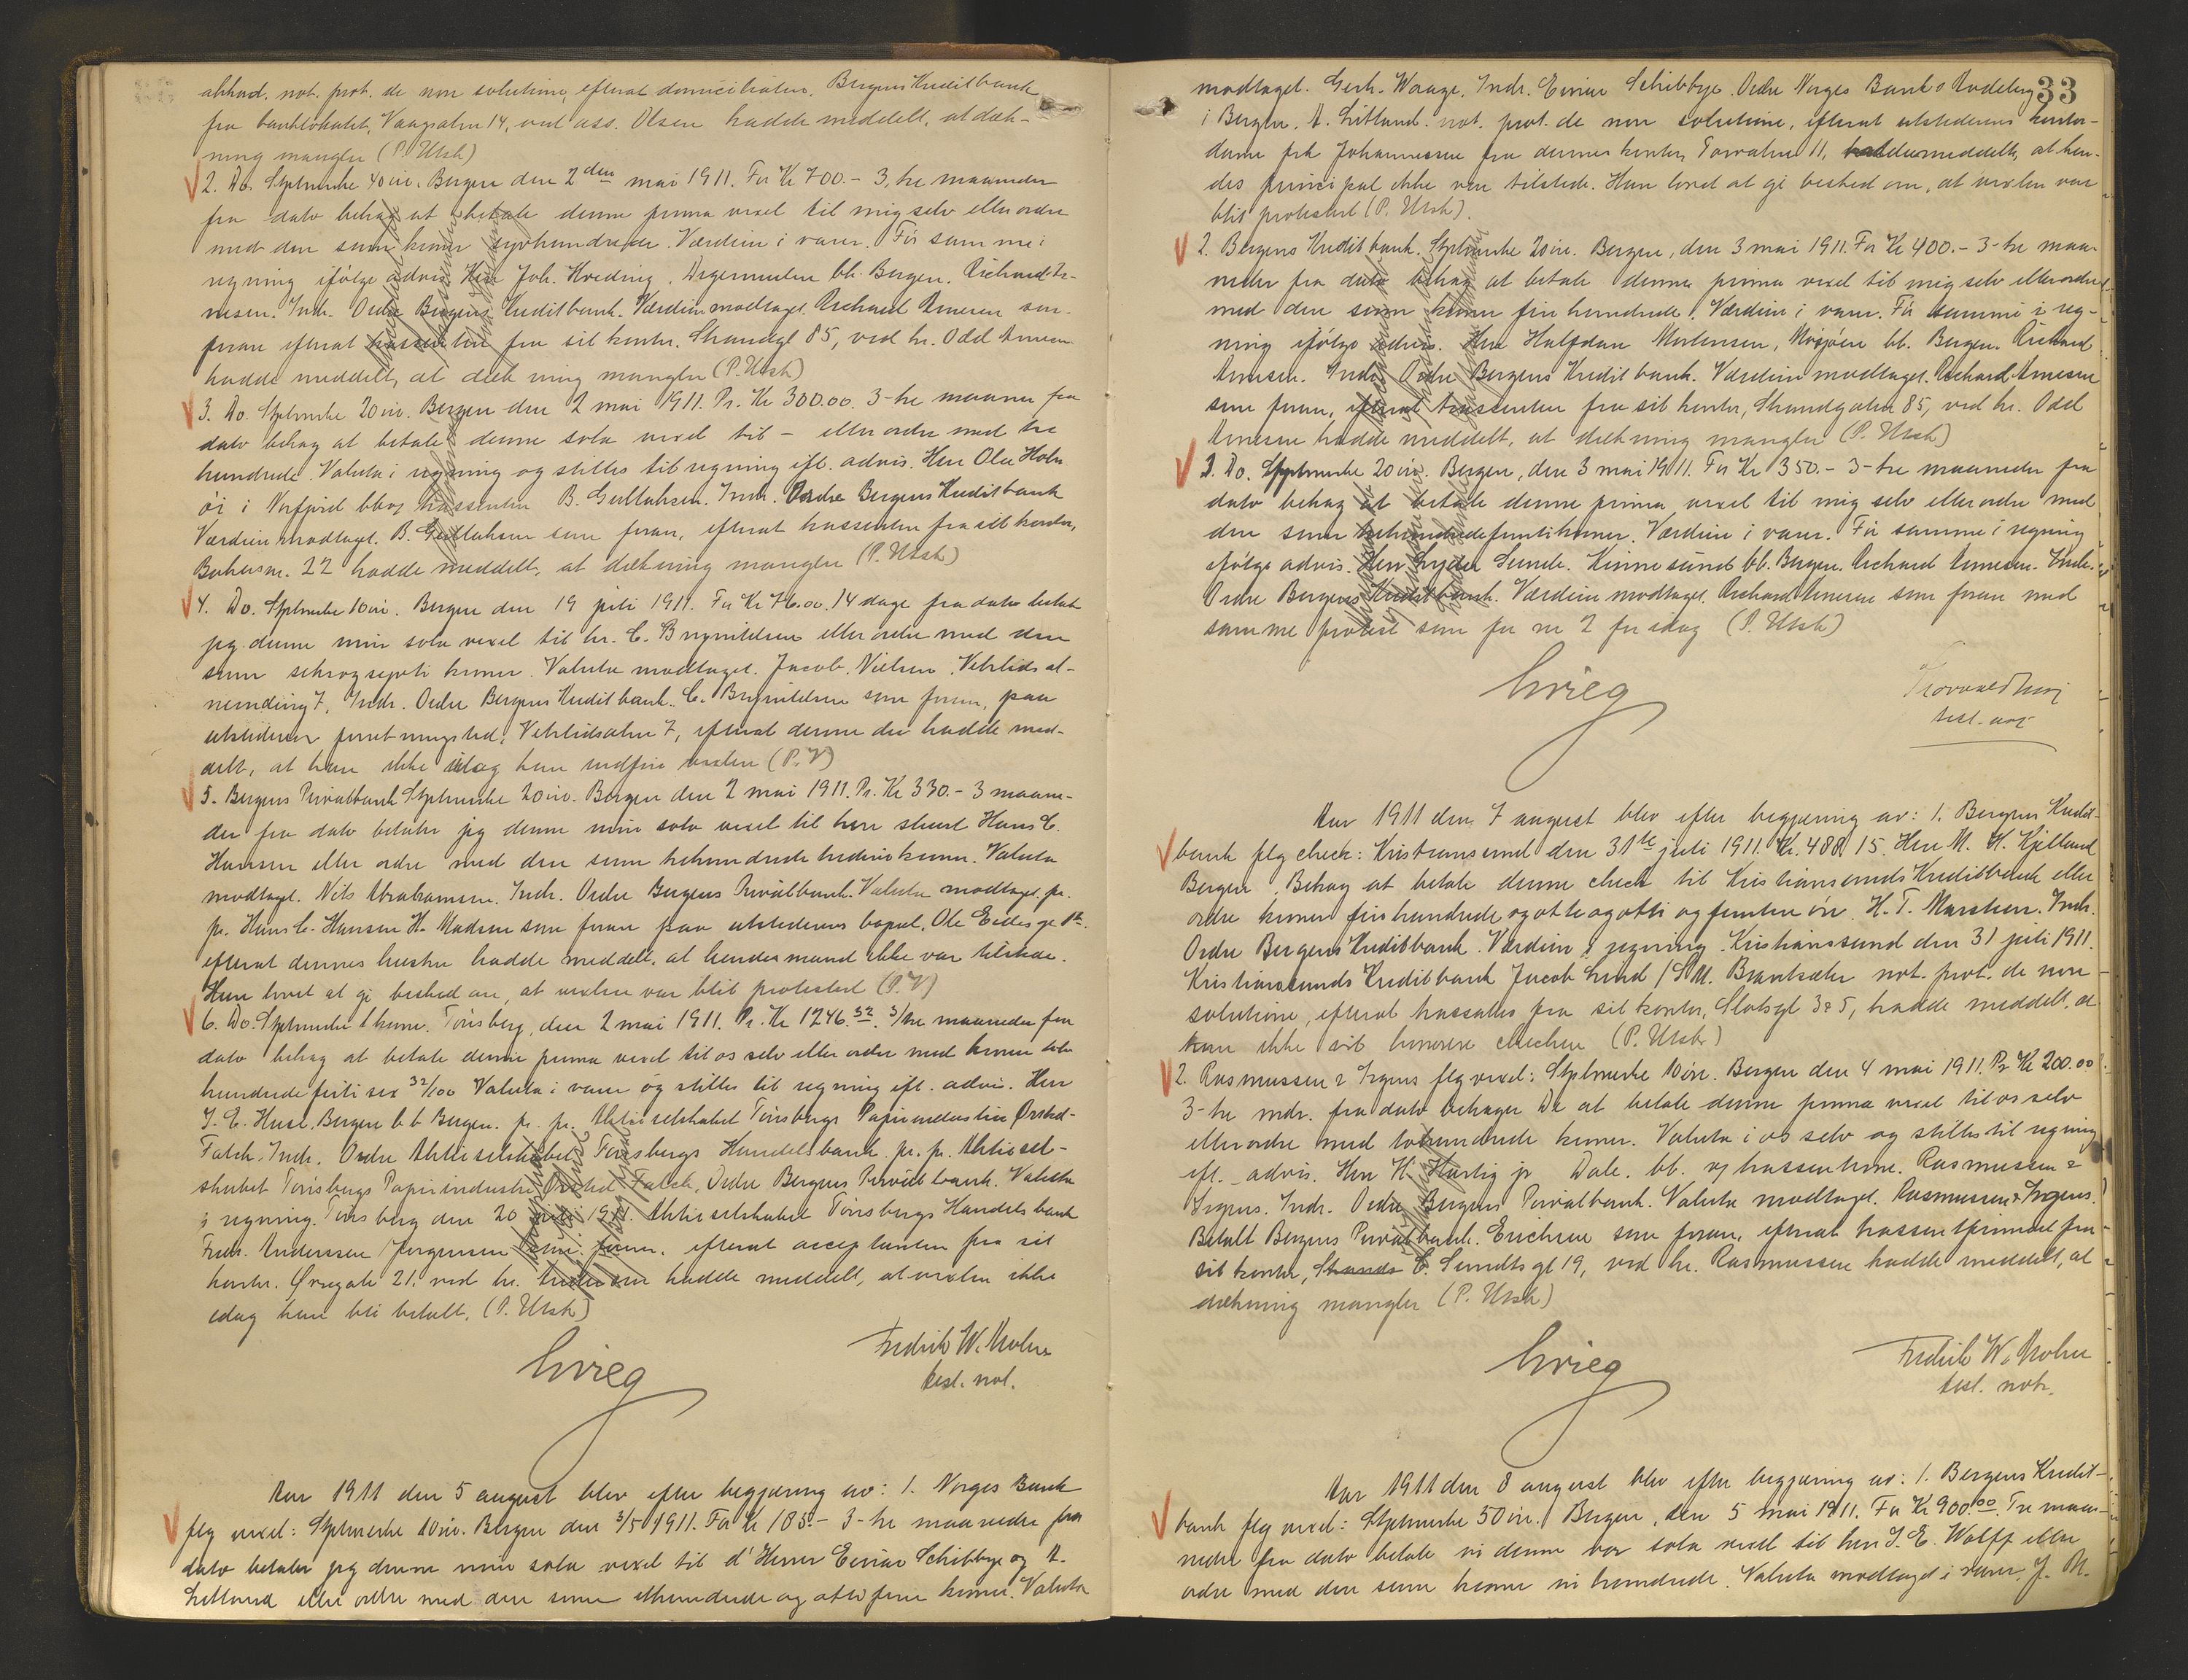 akkad. not. prot. de non solutione, efterat domiciliaten, Bergens Kreditbank
fra banklokalet, Vaagsalm 14, ved ass. Olsen hadde meddelt, at dæk-
ning mangler (P. Utsk)
2. Do. Stplmerke 40 øre. Bergen den 2den mai 1911. For Kr 700.- 3, tre maaneder
fra dato behag at betale denne prima vexel til mig selv eller ordre
med den sum kroner syvhundrede. Værdien i varer. Før samme i
regning ifølge advis. Herr Joh. Hveding. Digermulen bb. Bergen. Richard Ar-
nesen. Indr. Ordre Bergens Kreditbank. Værdien modtaget. Richard Arnesen som
foran efterat trassenten fra sit kontor, Strandgt 85, ved hr. Odd Arnesen
hadde meddelt, at dækning mangler (P. Utsk)
3. Do. Stplmerke 20 øre. Bergen den 2 mai 1911. Pr. Kr 300.00. 3-tre maaner fra
dato behag at betale denne sola vexel til - eller ordre med tre
hundrede. Valuta i regning og stilles til regning ifl. advis. Herr Ole Holm
øi i Nerfjord bbos trassenten B. Gullaksen. Indr. Ordre Bergens Kreditbank
Værdien modtaget. B. Gullaksen som foran, efterat trassenten fra sit kontor,
22 hadde meddelt, at dækning mangler (P. Utsk)
4. Do. Stplmerke 10 øre. Bergen den 19 juli 1911. For Kr 76.00. 14 dage fra dato betaler
jeg denne min sola vexel til hr. C. Brynildsen eller ordre med den
sum seksogsytti kroner. Valuta modtaget. Jacob Nielsen. Vetrlidsal-
mending 7, Indr. Ordre Bergens Kreditbank. C. Brynildsen som foran, paa
utstederens forretningssted, Vetrlidsalm 7, efterat denne der hadde med-
delt, at han ikke idag kan indfri vexlen (P. V)
5. Bergens Privatbank Stplmerke 20 øre. Bergen den 2 mai 1911. Pr. Kr 330.- 3 maane-
der fra dato betaler jeg denne min sola vexel til herr Hans C.
Hansen eller ordre med den sum trehundrede tredive kroner. Valuta
modtaget. Nils Abrahamsen. Indr. Ordre Bergens Privatbank. Valuta modtaget. pr.
pr. Hans C. Hansen H. Madsen som foran paa utstederens bopæl, Ole
efterat dennes hustru hadde meddelt, at hendes mand ikke var tilstede.
Hun lovet at gi besked om, at vexlen var blit protestert (P. V)
6. Do. Stplmerke 1 krone. Tønsberg, den 2 mai 1911. Pr. Kr 1246.32. 3/tre maaneder fra
dato behag at betale denne prima vexel til os selv eller ordre med kroner tolv
hundrede førti sex 32/100 Valuta i varer og stilles til regning ifl. advis. Herr
J. E. Huse, Bergen bb Bergen. pr. pr. Aktieselskabet Tønsbergs Papirindustri Ørsted-
Falck. Indr. Ordre Aktieselskabet Tønsbergs Handelsbank. pr. pr. Aktiesel-
skabet Tønsbergs Papirindustri Ørsted Falck. Ordre Bergens Privatbank. Valuta
i regning. Tønsberg den 20 juli 1911. Aktieselskabet Tønsbergs Handelsbank
Fredr. Anderssen Jørgensen som foran, efterat acceptanten fra sit
kontor, Øvregate 21, ved hr. hadde meddelt, at vexlen ikke
idag kan bli betalt. (P. Utsk)
Grieg
Fredrik W. Mohn
best. not.
Aar 1911 den 5 august blev efter begjæring av: 1. Norges Bank
flg vexel: Stplmerke 10 øre. Bergen den 3/5 1911. For Kr 185.- 3-tre maaneder fra
dato betaler jeg denne min sola vexel til d'Herrer Einar Schibbye og A.
Litland eller ordre med den sum ethundrede og otti fem kroner. Valuta
33
modtaget. Gerh. Waage. Indr. Einar Schibbye. Ordre Norges Banks Avdeling
i Bergen. A. Litland. not. prot. de non solutione, efterat utstederens kontor-
dame frk Johannessen fra dennes kontor, Torvalm 11, hadde meddelt, at hen-
des principal ikke var tilstede. Hun lovet at gi besked om, at vexlen var
blit protestert (P. Utsk).
2. Bergens Kreditbank. Stplmerke 20 øre. Bergen, den 3 mai 1911. For Kr 400.- 3-tre maa-
neder fra dato behag at betale denne prima vexel til mig selv eller ordre
med den sum kroner fire hundrede. Værdien i varer. Før samme i reg-
ning ifølge advis. Herr Halfdan Mortensen, Mosjøen bb. Bergen. Richard
Arnesen. Indr. Ordre Bergens Kreditbank. Værdien modtaget. Richard Arnesen
som foran, efterat trassenten fra sit kontor, Strandgaten 85, ved hr. Odd
Arnesen hadde meddelt, at dækning mangler (P. Utsk)
3. Do. Stplmerke 20 øre. Bergen, den 3 mai 1911. For Kr 350.- 3-tre maaneder fra
dato behag at betale denne prima vexel til mig selv eller ordre med
den sum trehundredefemti kroner. Værdien i varer. Før samme i regning
ifølge advis. Herr Lyder Sunde. Kinnesund bb. Bergen. Richard Arnesen. Indr.
Ordre Bergens Kreditbank. Værdien modtaget. Richard Arnesen som foran med
samme protest som for nr 2 for idag (P. Utsk)
Grieg
Aar 1911 den 7 august blev efter begjæring av: 1. Bergens Kredit-
bank flg check: Kristiansund den 31te juli 1911. Kr. 488.15. Herr M. H. Kjelland
Bergen. Behag at betale denne check til Kristiansunds Kreditbank eller
ordre kroner fire hundrede og otte og otti og femten øre. H. T. Marstein. Indr.
Ordre Bergens Kreditbank. Værdien i regning. Kristianssund den 31 juli 1911.
Kristianssunds Kreditbank Jacob Lund / S. M. Brantsæter not. prot. de non
solutione, efterat trassatus fra sit kontor, Slotsgt 3&5, hadde meddelt, at
han ikke vil honorere checken (P. Utsk)
2. Rasmussen & Irgens flg vexel: Stplmerke 10 øre. Bergen den 4 mai 1911. Pr Kr 200.00
3-tre mdr. fra dato behager De at betale denne prima vexel til os selv
eller ordre med tohundrede kroner. Valuta i os selv og stilles til regning
ifl. advis. Herr K. Hartig jr Dale. bb. os trassenterne. Rasmussen &
Irgens. Indr. Ordre Bergens Privatbank. Valuta modtaget. Rasmussen & Irgens.
Betalt Bergens Privatbank. Erichsen som foran, efterat trassentfirmaet fra
sit kontor, C. Sundtsgt 19, ved hr. Rasmussen hadde meddelt, at
dækning mangler (P. Utsk)
Grieg
Fredrik W. Mohn
best. notr.
Aar 1911 den 8 august blev efter begjæring av: 1. Bergens Kredit-
bank flg vexel: Stplmerke 50 øre. Bergen, den 5 mai 1911. For Kr 900.00. Tre maa-
neder fra dato betale vi denne vor sola vexel til herr J. E. Wolff eller
ordre med den sum kroner ni hundrede. Valuta modtaget i varer. J. M.